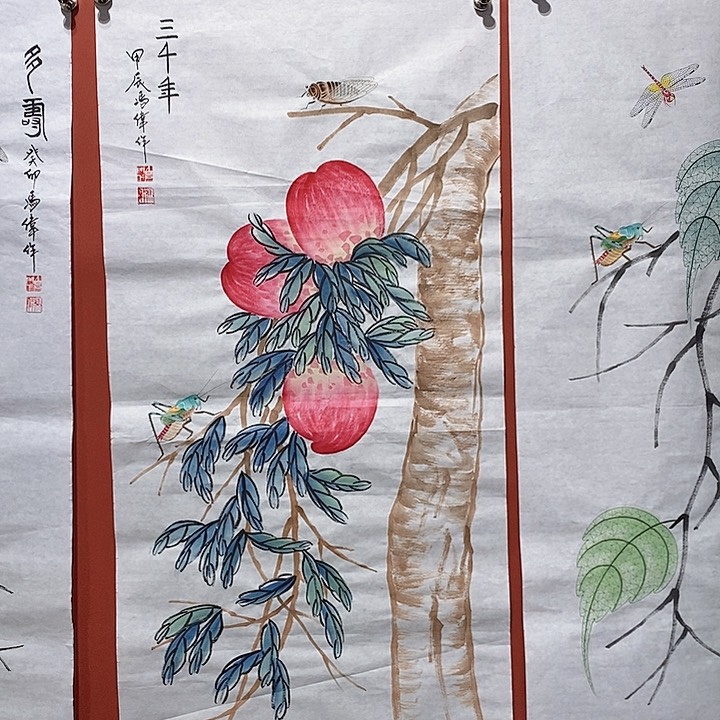 三千年
甲辰馮偉作
多壽
癸卯馮偉作